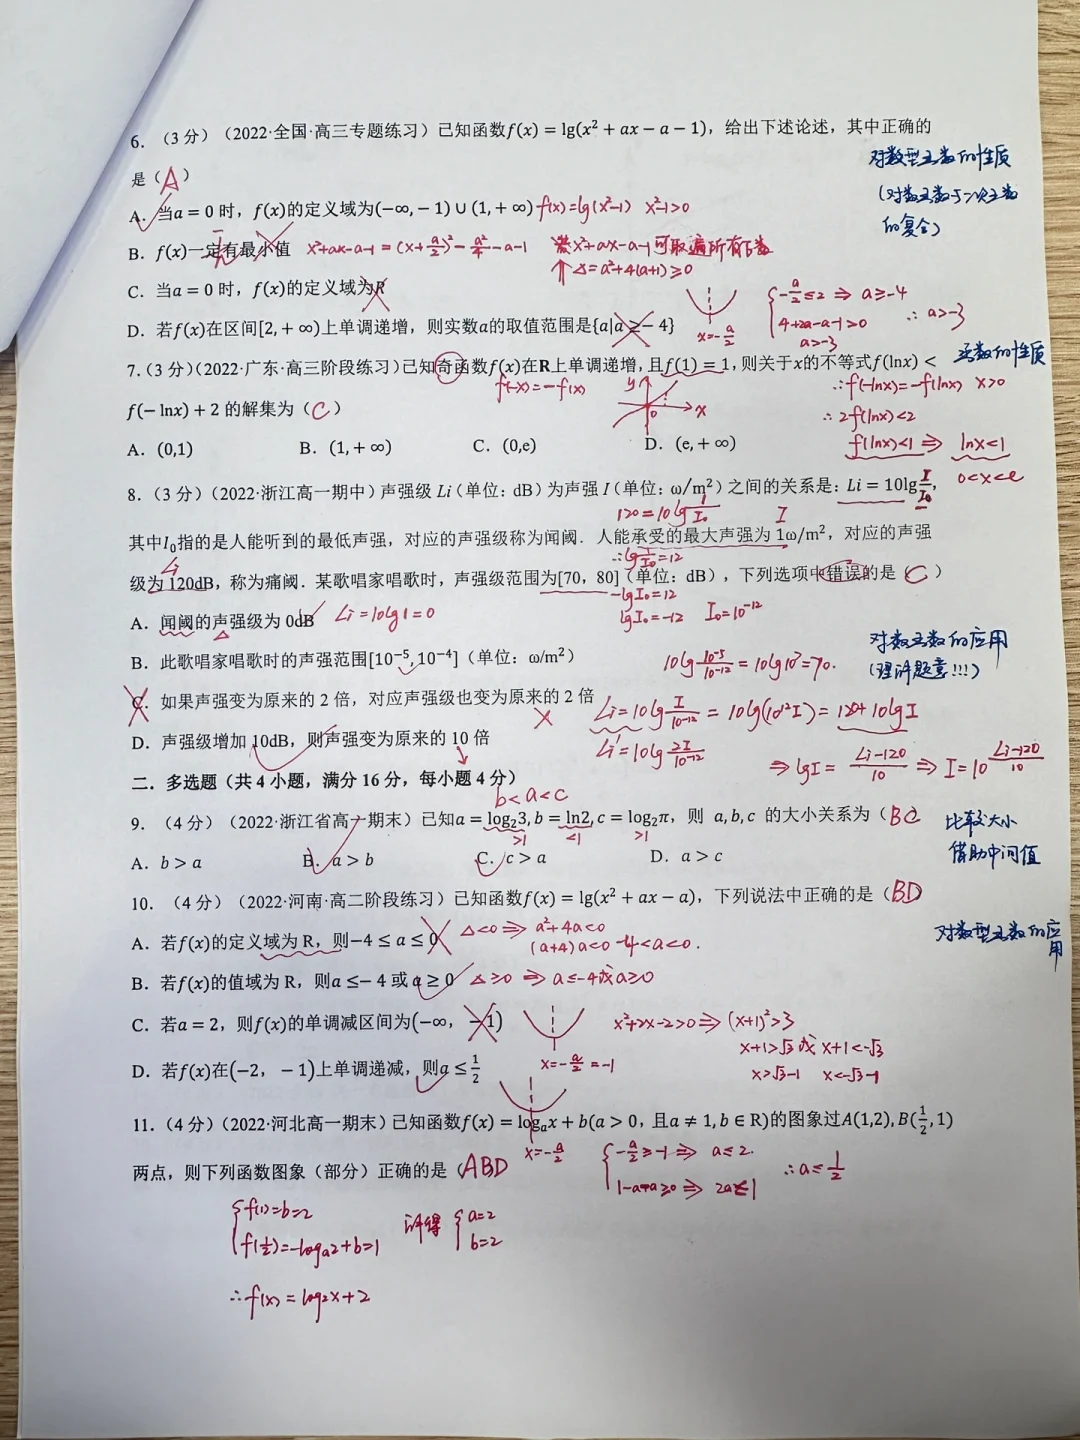 6. （3 分）（2022·全国·高三专题练习）已知函数f(x) = lg(x² + ax − a − 1)，给出下述论述，其中正确的
对数型函数的性质
是（A）
(对数函数与二次函数
的复合)
A. 当a = 0 时，f(x)的定义域为(−∞, − 1) ∪ (1, + ∞) f(x)=lg(x²-1) x²-1>0
B. f(x)一定有最小值 x²+ax-a-1=(x+a/2)²-a²/4-a-1 x²+ax-a-1可取遍所有正数
↑△=a²+4(a+1)≥0
C. 当a = 0 时，f(x)的定义域为R
D. 若f(x)在区间[2, + ∞)上单调递增，则实数a的取值范围是{a|a ≥− 4} x=-a/2
-a/2≤2 ⇒ a≥-4
4+2a-a-1>0
a>-3
∴ a>-3
7.（3 分）（2022·广东·高三阶段练习）已知奇函数f(x)在R上单调递增，且f(1) = 1，则关于x的不等式f(lnx) <
函数的性质
f(-x)=-f(x) y x 0
∴f(-lnx)=-f(lnx) x>0
f(− lnx) + 2 的解集为（C）
∴ 2f(lnx)<2
A. (0,1) B. (1, + ∞) C. (0,e) D. (e, + ∞)
f(lnx)<1 ⇒ lnx<1
0<x<e
8.（3 分）（2022·浙江高一期中）声强级 Li（单位：dB）为声强 I（单位：ω/m²）之间的关系是：Li = 10lg I/I₀,
120=10lg 1/I₀ I
其中I₀指的是人能听到的最低声强，对应的声强级称为闻阈．人能承受的最大声强为 1ω/m²，对应的声强
∴lg 1/I₀=12
Li
级为 120dB，称为痛阈．某歌唱家唱歌时，声强级范围为[70，80]（单位：dB），下列选项中错误的是（C）
-lgI₀=12
A. 闻阈的声强级为 0dB Li=10lg1=0
lgI₀=-12 I₀=10⁻¹²
对数函数的应用
(理解题意!!!)
B. 此歌唱家唱歌时的声强范围[10⁻⁵, 10⁻⁴]（单位：ω/m²）
10lg 10⁻⁵/10⁻¹² = 10lg10⁷=70.
C. 如果声强变为原来的 2 倍，对应声强级也变为原来的 2 倍
Li=10lg I/10⁻¹² = 10lg(10¹²I)=120+10lgI
D. 声强级增加 10dB，则声强变为原来的 10 倍
Li'=10lg 2I/10⁻¹²
⇒ lgI= Li-120/10 ⇒ I=10^(Li-120/10)
二．多选题（共 4 小题，满分 16 分，每小题 4 分）
b<a<c
9. （4 分）（2022·浙江省高一期末）已知a = log₂3, b = ln2, c = log₂π，则 a, b, c 的大小关系为（BC
>1 <1 >1
比较大小
借助中间值
A. b > a B. a > b C. c > a D. a > c
10. （4 分）（2022·河南·高二阶段练习）已知函数f(x) = lg(x² + ax − a)，下列说法中正确的是（BD
对数型函数的应
用
A. 若f(x)的定义域为 R，则−4 ≤ a ≤ 0 △<0 ⇒ a²+4a<0
(a+4)a<0 -4<a<0.
B. 若f(x)的值域为 R，则a ≤− 4 或 a ≥ 0 △≥0 ⇒ a≤-4或a≥0
C. 若a = 2，则f(x)的单调减区间为(−∞, − 1)
x=-a/2=-1
x²+2x-2>0⇒(x+1)²>3
x+1>√3或x+1<-√3
x>√3-1 x<-√3-1
D. 若f(x)在(−2, − 1)上单调递减，则a ≤ 1/2
11.（4 分）（2022·河北高一期末）已知函数f(x) = logₐx + b(a > 0，且a ≠ 1, b ∈ R)的图象过A(1,2), B(1/2, 1)
x=-a/2
-a/2≥-1 ⇒ a≤2.
1-a-a≥0 ⇒ 2a≤1
∴a≤1/2
两点，则下列函数图象（部分）正确的是（ABD
f(1)=b=2
f(1/2)=-logₐ2+b=1
解得 a=2
b=2
∴f(x)=log₂x+2